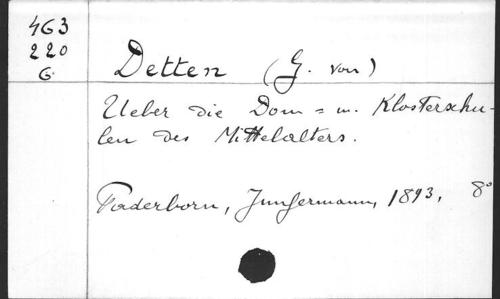 463
220
G.
Detten (G. von)
Ueber die Dom = u. Klosterschu-
len des Mittelalters.
Paderborn, Junfermann, 1893, 8°